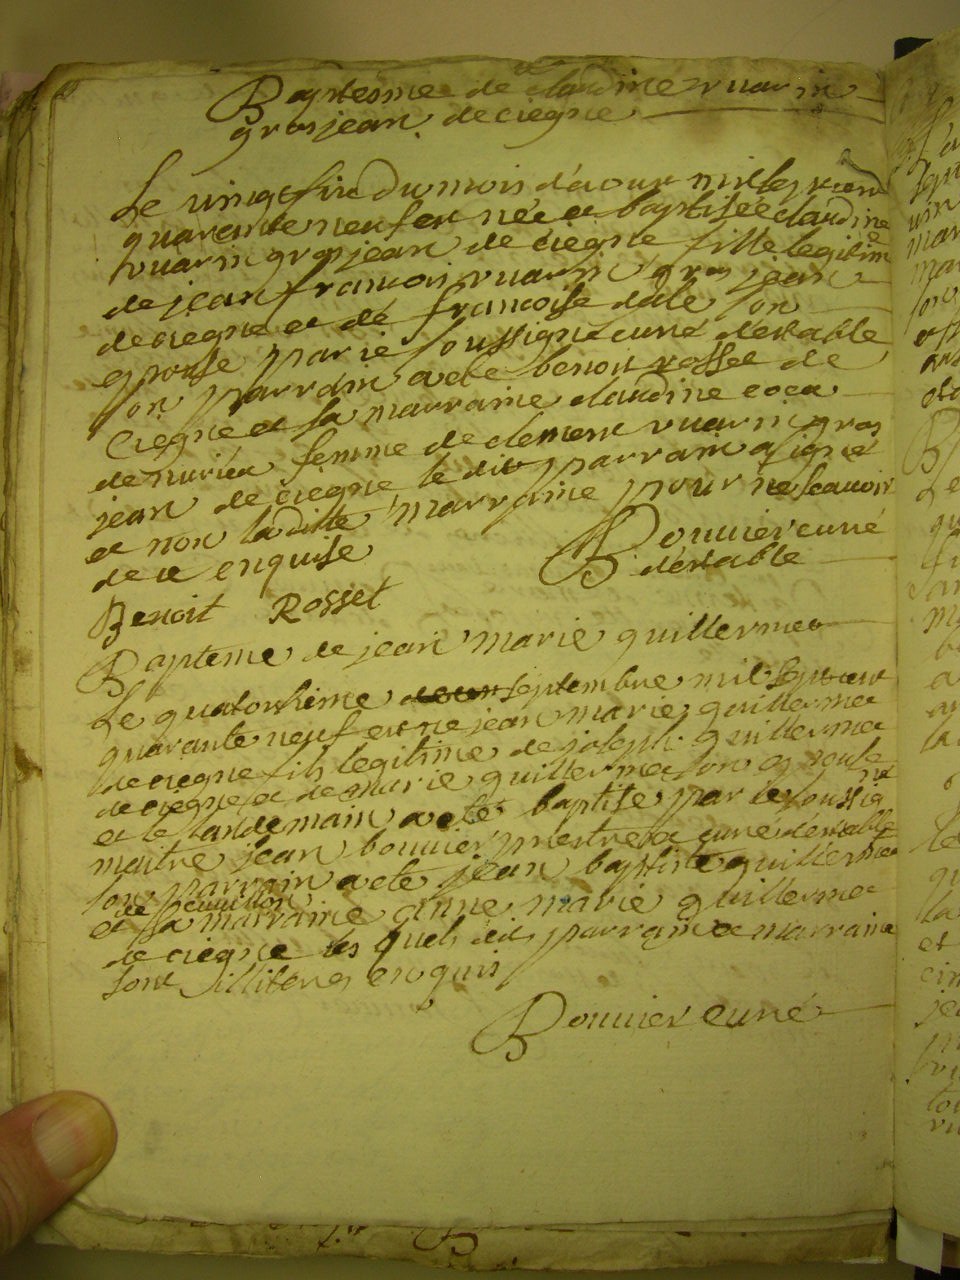 Baptesme de claudine vuarin
gros jean de ciegne
Le vingt six du mois d'aout mil sept cent
quarante neuf est née et baptisée claudine
vuarin gros jean de ciegne fille legitime
de jean francois vuarin gros jean
de ciegne et de francoise dale son
epouse par le soussigné curé destable
son parrain a ete benoit rosset de
Ciegne et sa marraine claudine coca
de nurieu femme de clement vuarin gros
jean de ciegne le dit parrain a signé
et non la ditte marraine pour ne scavoir
de ce enquise
Bouvier curé
destable
Benoit Rosset
Bapteme de jean marie guillermet
Le quatorsieme septembre mil sept cent
quarante neuf est ne jean marie guillermet
de ciegne fils legitime de joseph guillermet
de ciegne et de marie guillermet son epouse
et le landemain a ete baptise par le soussigné
maitre jean bouvier prestre et curé destable
son parrain a ete jean baptiste guillermet
et sa marraine anne marie guillermet
de ciegne les quels dit parrain et marraine
sont illiteres enquis
Bouvier curé